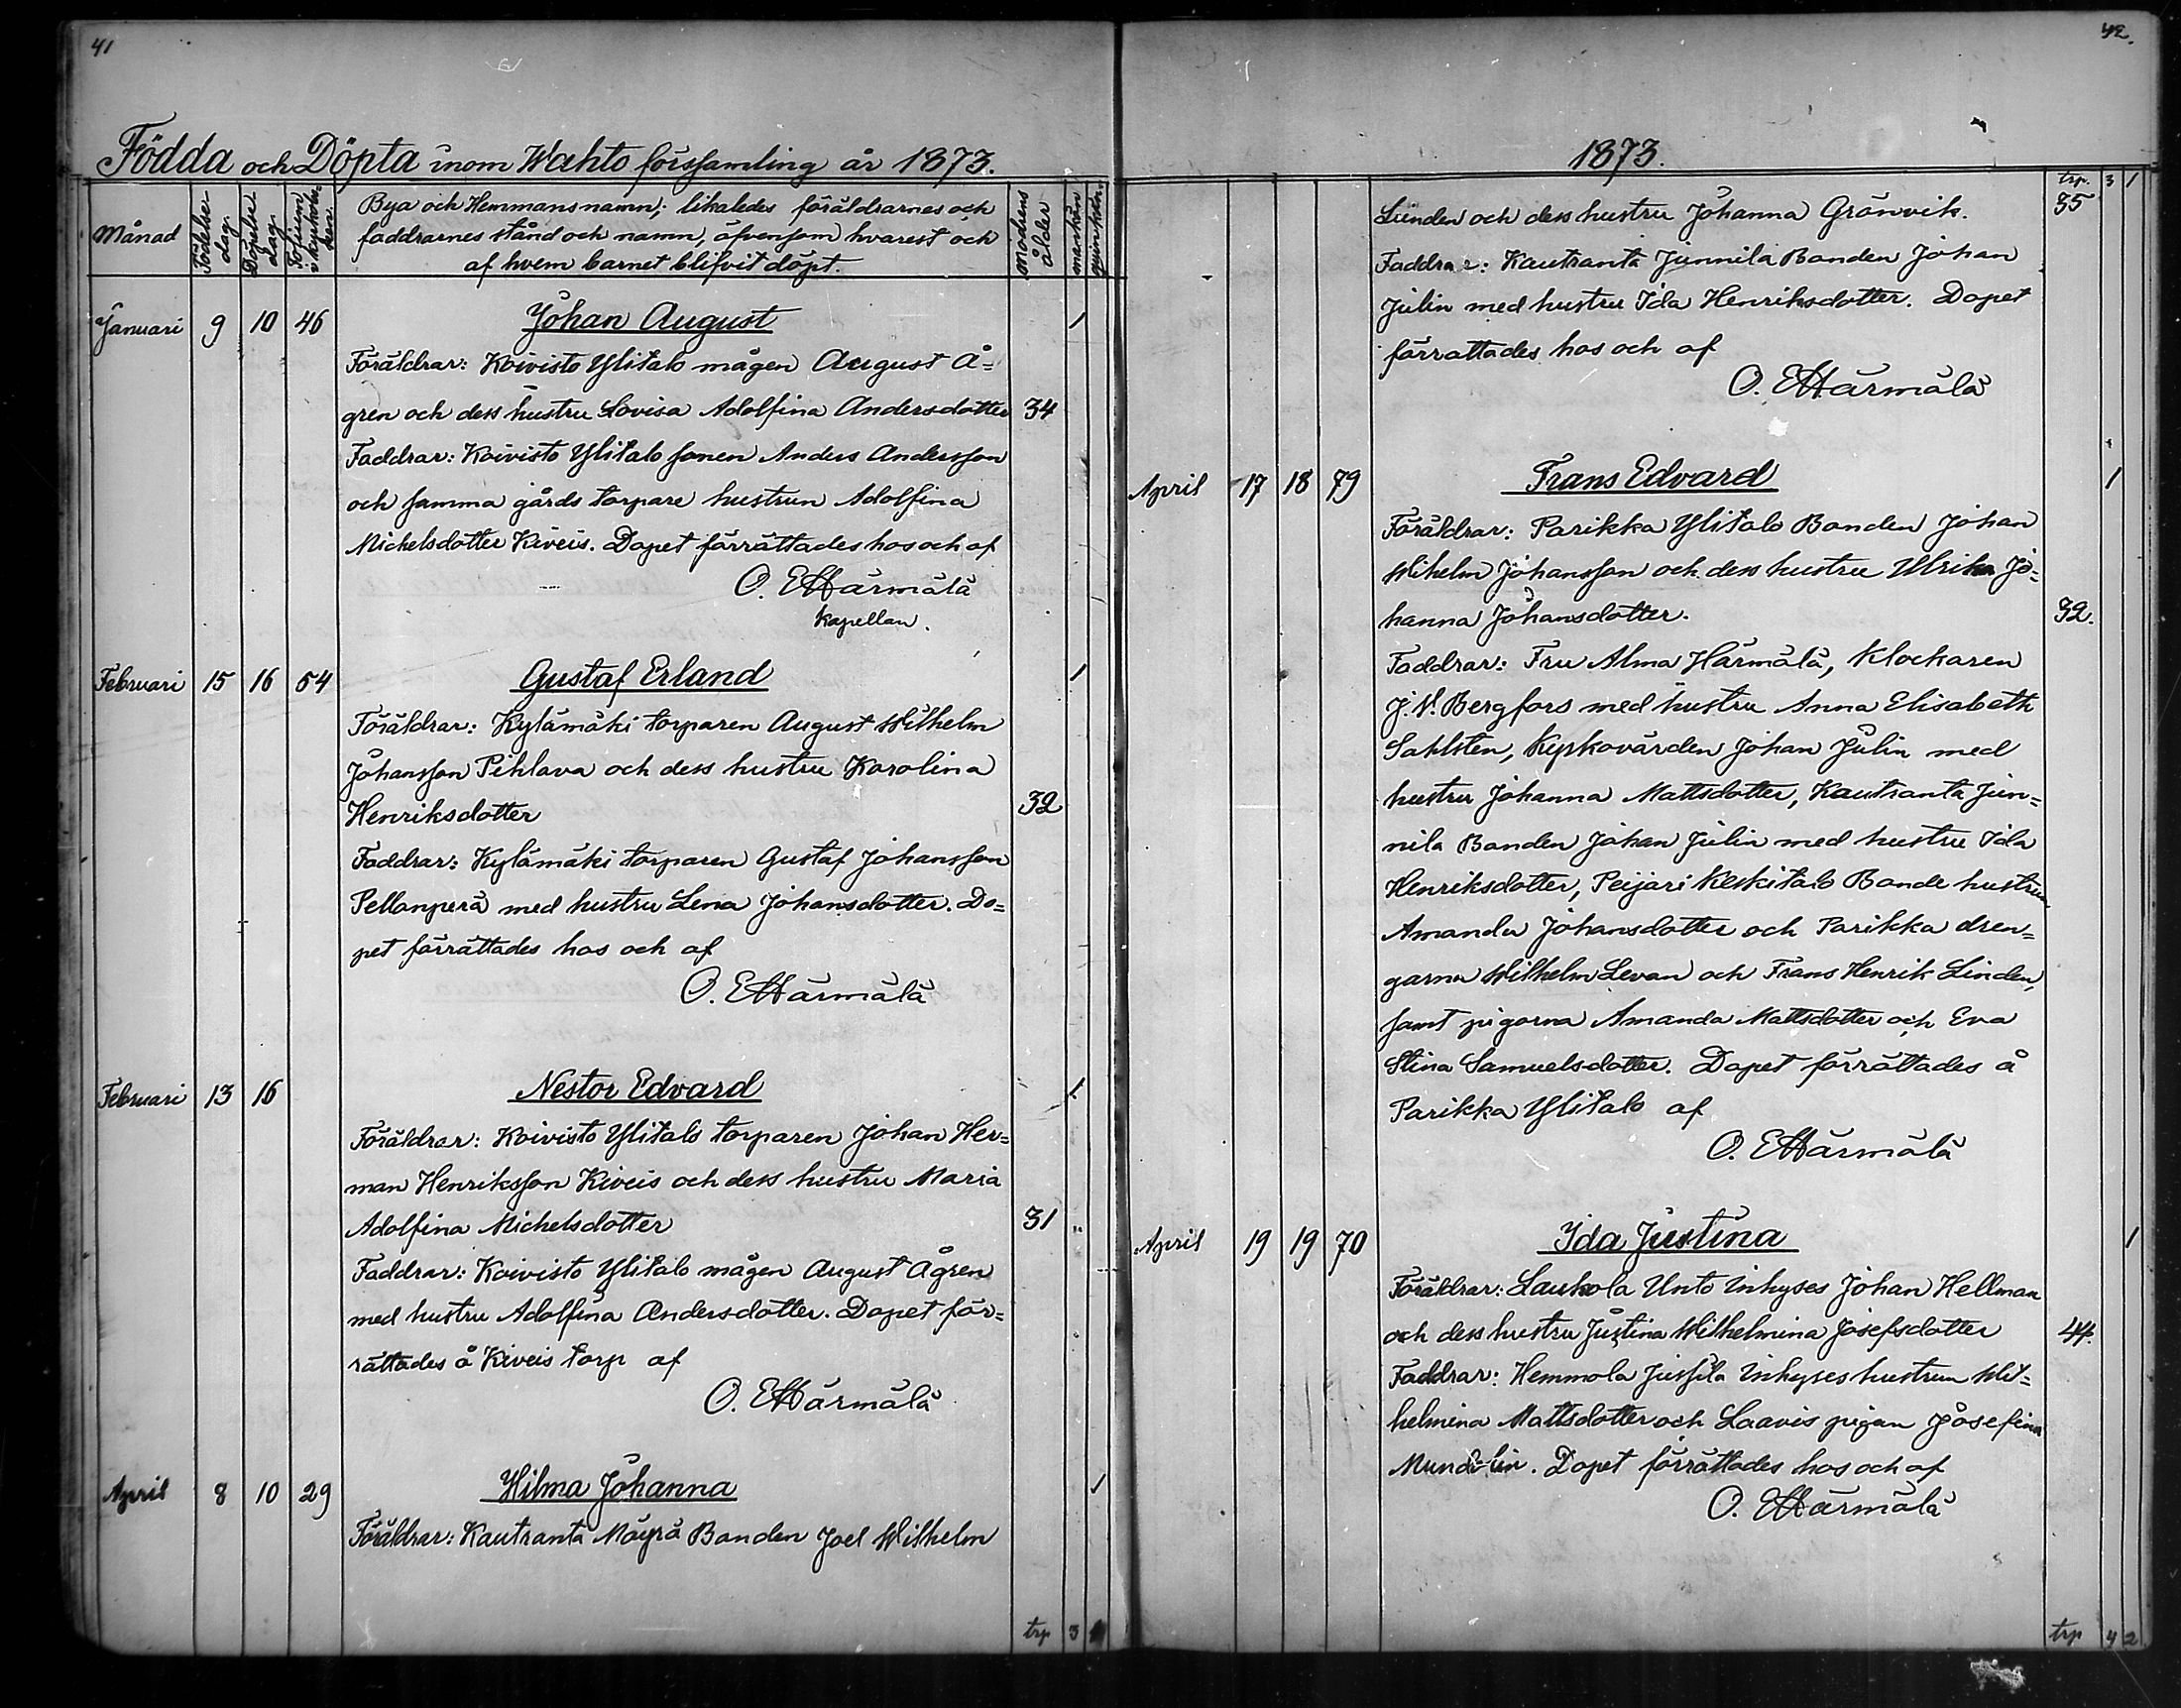 41
Födda och Döpta inom Wahto församling år 1873.
Månad
Födelse dag
Döpelse dag
Bya och Hemmansnamn; likaledes föräldrarnes och
faddrarnes stånd och namn, äfvensom hvarest och
af hvem barnet blifvit döpt.
Modrens ålder
mankön
qvinkön
Januari 9 10 46 Johan August 1
Föräldrar: Koivisto Ylitalo mågen August Å=
gren och dess hustru Lovisa Adolfina Andersdotter 34
Faddrar: Koivisto Ylitalo sonen Anders Andersson
och samma gårds torpare hustrun Adolfina
Michelsdotter Kiveis. Dopet förrättades hos och af
O. E Härmälä
kapellan.
Februari 15 16 54 Gustaf Erland 1
Föräldrar: Kylämäki torparen August Wilhelm
Johansson Pihlava och dess hustru Karolina
Henriksdotter 32
Faddrar: Kylämäki torparen Gustaf Johansson
Pellonperä med hustru Lena Johansdotter. Do=
pet förrättades hos och af
O. E Härmälä
Februari 13 16 Nestor Edvard 1
Föräldrar: Koivisto Ylitalo torparen Johan Her=
man Henriksson Kiveis och dess hustru Maria
Adolfina Michelsdotter 31
Faddrar: Koivisto Ylitalo mågen August Ågren
med hustru Adolfina Andersdotter. Dopet för=
rättades å Kiveis torp af
O. E Härmälä
April 8 10 29 Hilma Johanna 1
Föräldrar: Kautranta Mäyrä Bonden Joel Wilhelm
trp 3 1
42.
1873.
trp. 3 1
Lunden och dess hustru Johanna Grönvik. 35
Faddrar: Kautranta Junnila Bonden Johan
Julin med hustru Ida Henriksdotter. Dopet
förrattades hos och af
O. E Härmälä
April 17 18 79 Frans Edvard 1
Föräldrar: Parikka Ylitalo Bonden Johan
Wihelm Johansson och dess hustru Ulrika Jo=
hanna Johansdotter. 32.
Faddrar: Fru Alma Härmälä, Klockaren
J. V. Bergfors med hustru Anna Elisabeth
Sahlsten, Kyrkovärden Johan Julin med
hustru Johanna Mattsdotter, Kautranta Jun=
nila Bonden Johan Julin med hustru Ida
Henriksdotter, Peijari Keskitalo Bonde hustrun
Amanda Johansdotter och Parikka dren=
garna Wilhelm Levan och Frans Henrik Linden,
samt pigorna Amanda Mattsdotter och Eva
Stina Samuelsdotter. Dopet förrättades å
Parikka Ylitalo af
O. E Härmälä
April 19 19 70 Ida Justina 1
Föräldrar: Laukola Unto Inhyses Johan Hellman
och dess hustru Justina Wilhelmina Josefsdotter 44.
Faddrar: Hemmola Jussila Inhyses hustrun Wil=
helmina Mattsdotter och Laavis pigan Josefina
Mundelin. Dopet förrättades hos och af
O. E Härmälä
trp 4 2